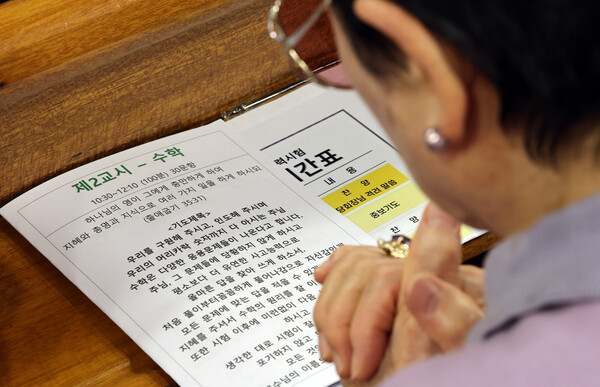 제2교시 - 수학
10:30~12:10 (100분) 30문항
하나님의 영이 그에게 충만하게 하여
지혜와 총명과 지식으로 여러 가지 일을 하게 하시되
(출애굽기 35:31)
<기도제목>
우리를 구원해 주시고, 인도해 주시며
우리의 머리카락 숫자까지 다 아시는 주님,
수학은 다양한 응용문제들이 나온다고 합니다.
주님, 그 문제들에 당황하지 않게 하시고
평소보다 더 유연한 사고능력으로
올바른 답을 찾아 쓰게 하소서.
처음 풀이부터 꼼꼼하게 풀어나감으로 자신감있게
모든 문제에 맞는 답을 적을 수 있
지혜를 주셔서 수학의 원리를 잘
또한 시험 이후에 미련없이 다음
하시고
생각한 대로 시험이 잘
포기하지 않고
모든
님의 이름
력시험
간표
내 용
찬 양
담회장님 격려 말씀
중보기도
찬양